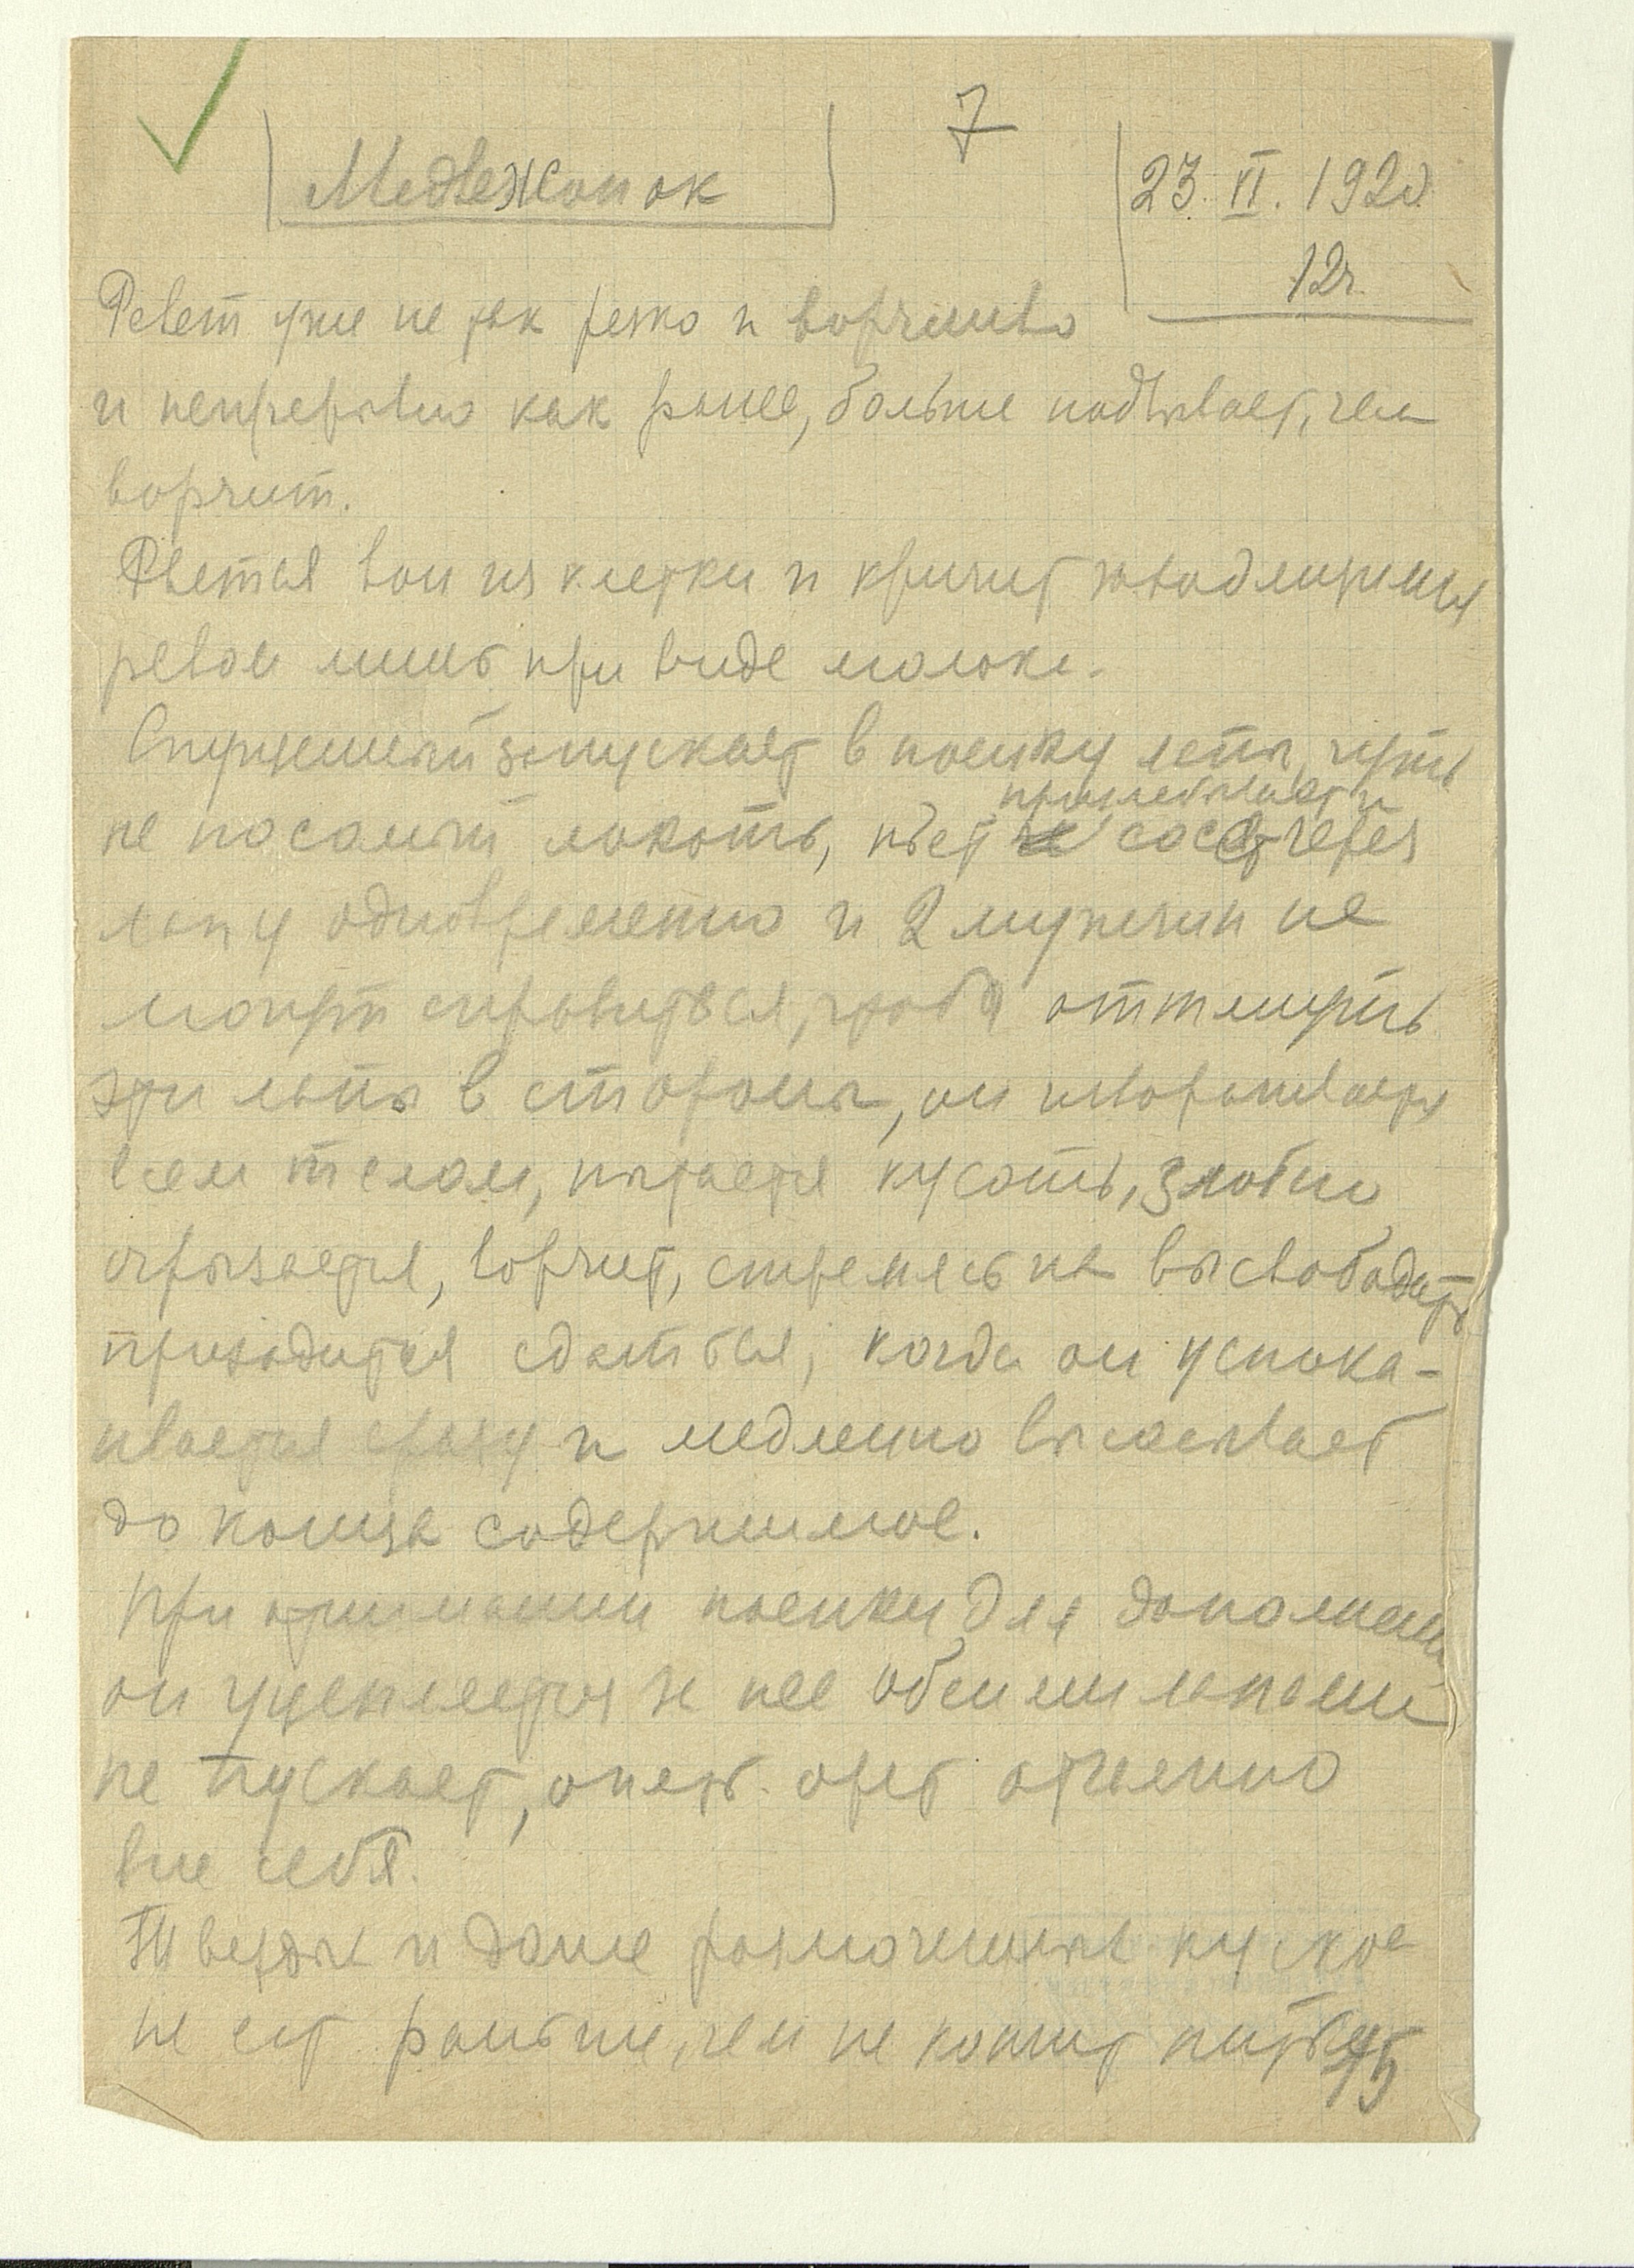 7
Медвежонок
23. VI. 1920
12ч.
Ревет уже не так резко и ворчливо
и непрерывно как ранее, больше подвывает, чем
ворчит.
Рвется вон из клетки и кричит
ревом лишь при виде молока.
Спущенный запускает в поилку лапы, чуть
прихлебывает и
не по самый локоть, пьет сосет через
лапу одновременно и 2 мужчин не
могут справиться, чтобы оттянуть
эти лапы в стороны, он изворачивается
всем телом, пытается кусать, злобно
огрызается, ворчит, стремясь их высвободить
приходится сдаться, когда он успока-
ивается сразу и медленно высасывает
до конца содержимое.
При отнимании поилки для дополнения
он уцепляется за нее обеими лапами
не пускает, опять орет отчаянно
вне себя.
Твердых и даже размоченных кусков
не ест раньше, чем не кончит пить
45